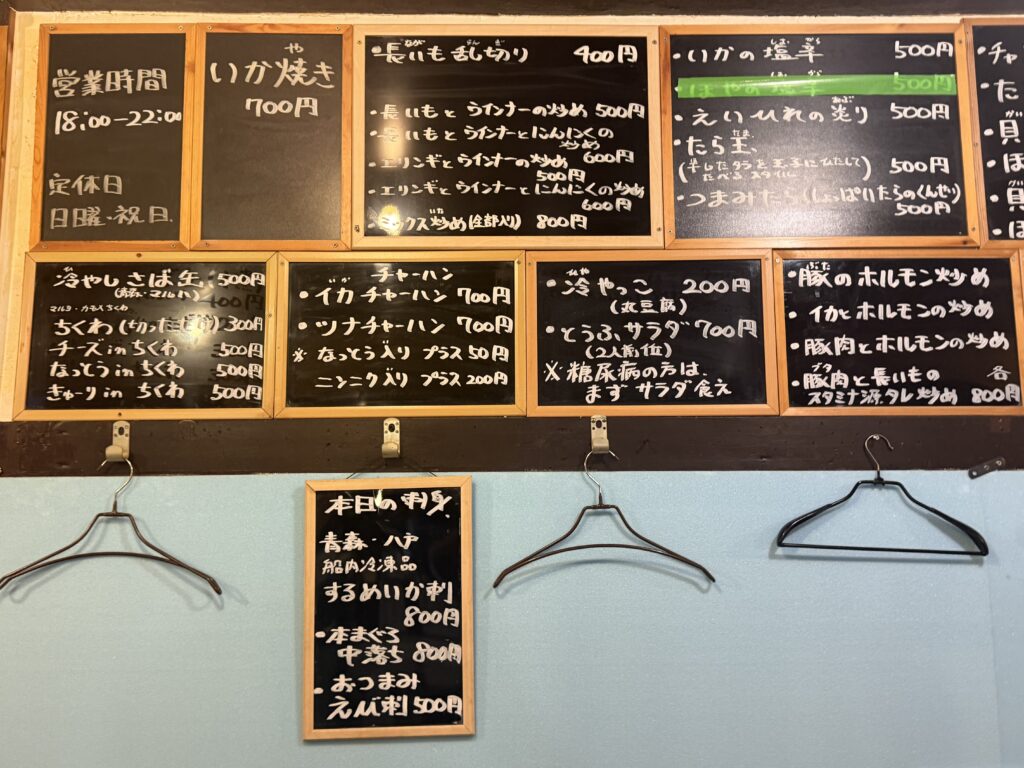 営業時間
18:00-22:00
定休日
日曜・祝日.
いか焼き
や
700円
・長いも乱切り 400円
なが らん ぎ
・長いもとウインナーの炒め 500円
・長いもとウインナーとにんにくの
炒め 600円
・エリンギとウインナーの炒め
500円
・エリンギとウインナーとにんにくの炒め
600円
ミックス炒め(全部入り) 800円
いた
・いかの塩辛 500円
しお から
・ほやの塩辛 500円
・えいひれの炙り 500円
あぶ
・たら玉、
たま
(干したタラを玉子にひたして
たべるスタイル) 500円
・つまみたら(しょっぱいたらのくんせい)
500円
・チャ
・た
・貝
・ほ
・貝
・ほ
冷やしさば缶、 500円
ひ
(青森・マルハ)
400円
マルタ・カネイちくわ
ちくわ(切っただけ) 300円
チーズinちくわ 500円
なっとうinちくわ 500円
きゅーりinちくわ 500円
チャーハン
・イカチャーハン 700円
・ツナチャーハン 700円
※なっとう入り プラス50円
ニンニク入り プラス200円
・冷やっこ 200円
ひや
(丸豆腐)
・とうふサラダ 700円
(2人前位)
※糖尿病の方は、
まずサラダ食え
・豚のホルモン炒め
ぶた
・イカとホルモンの炒め
・豚肉とホルモンの炒め
・豚肉と長いもの 各
ブタ
スタミナ源タレ炒め 800円
本日の刺身.
青森・八戸
船内冷凍品
するめいか刺
800円
・本まぐろ
中落ち 800円
・おつまみ
えび刺 500円